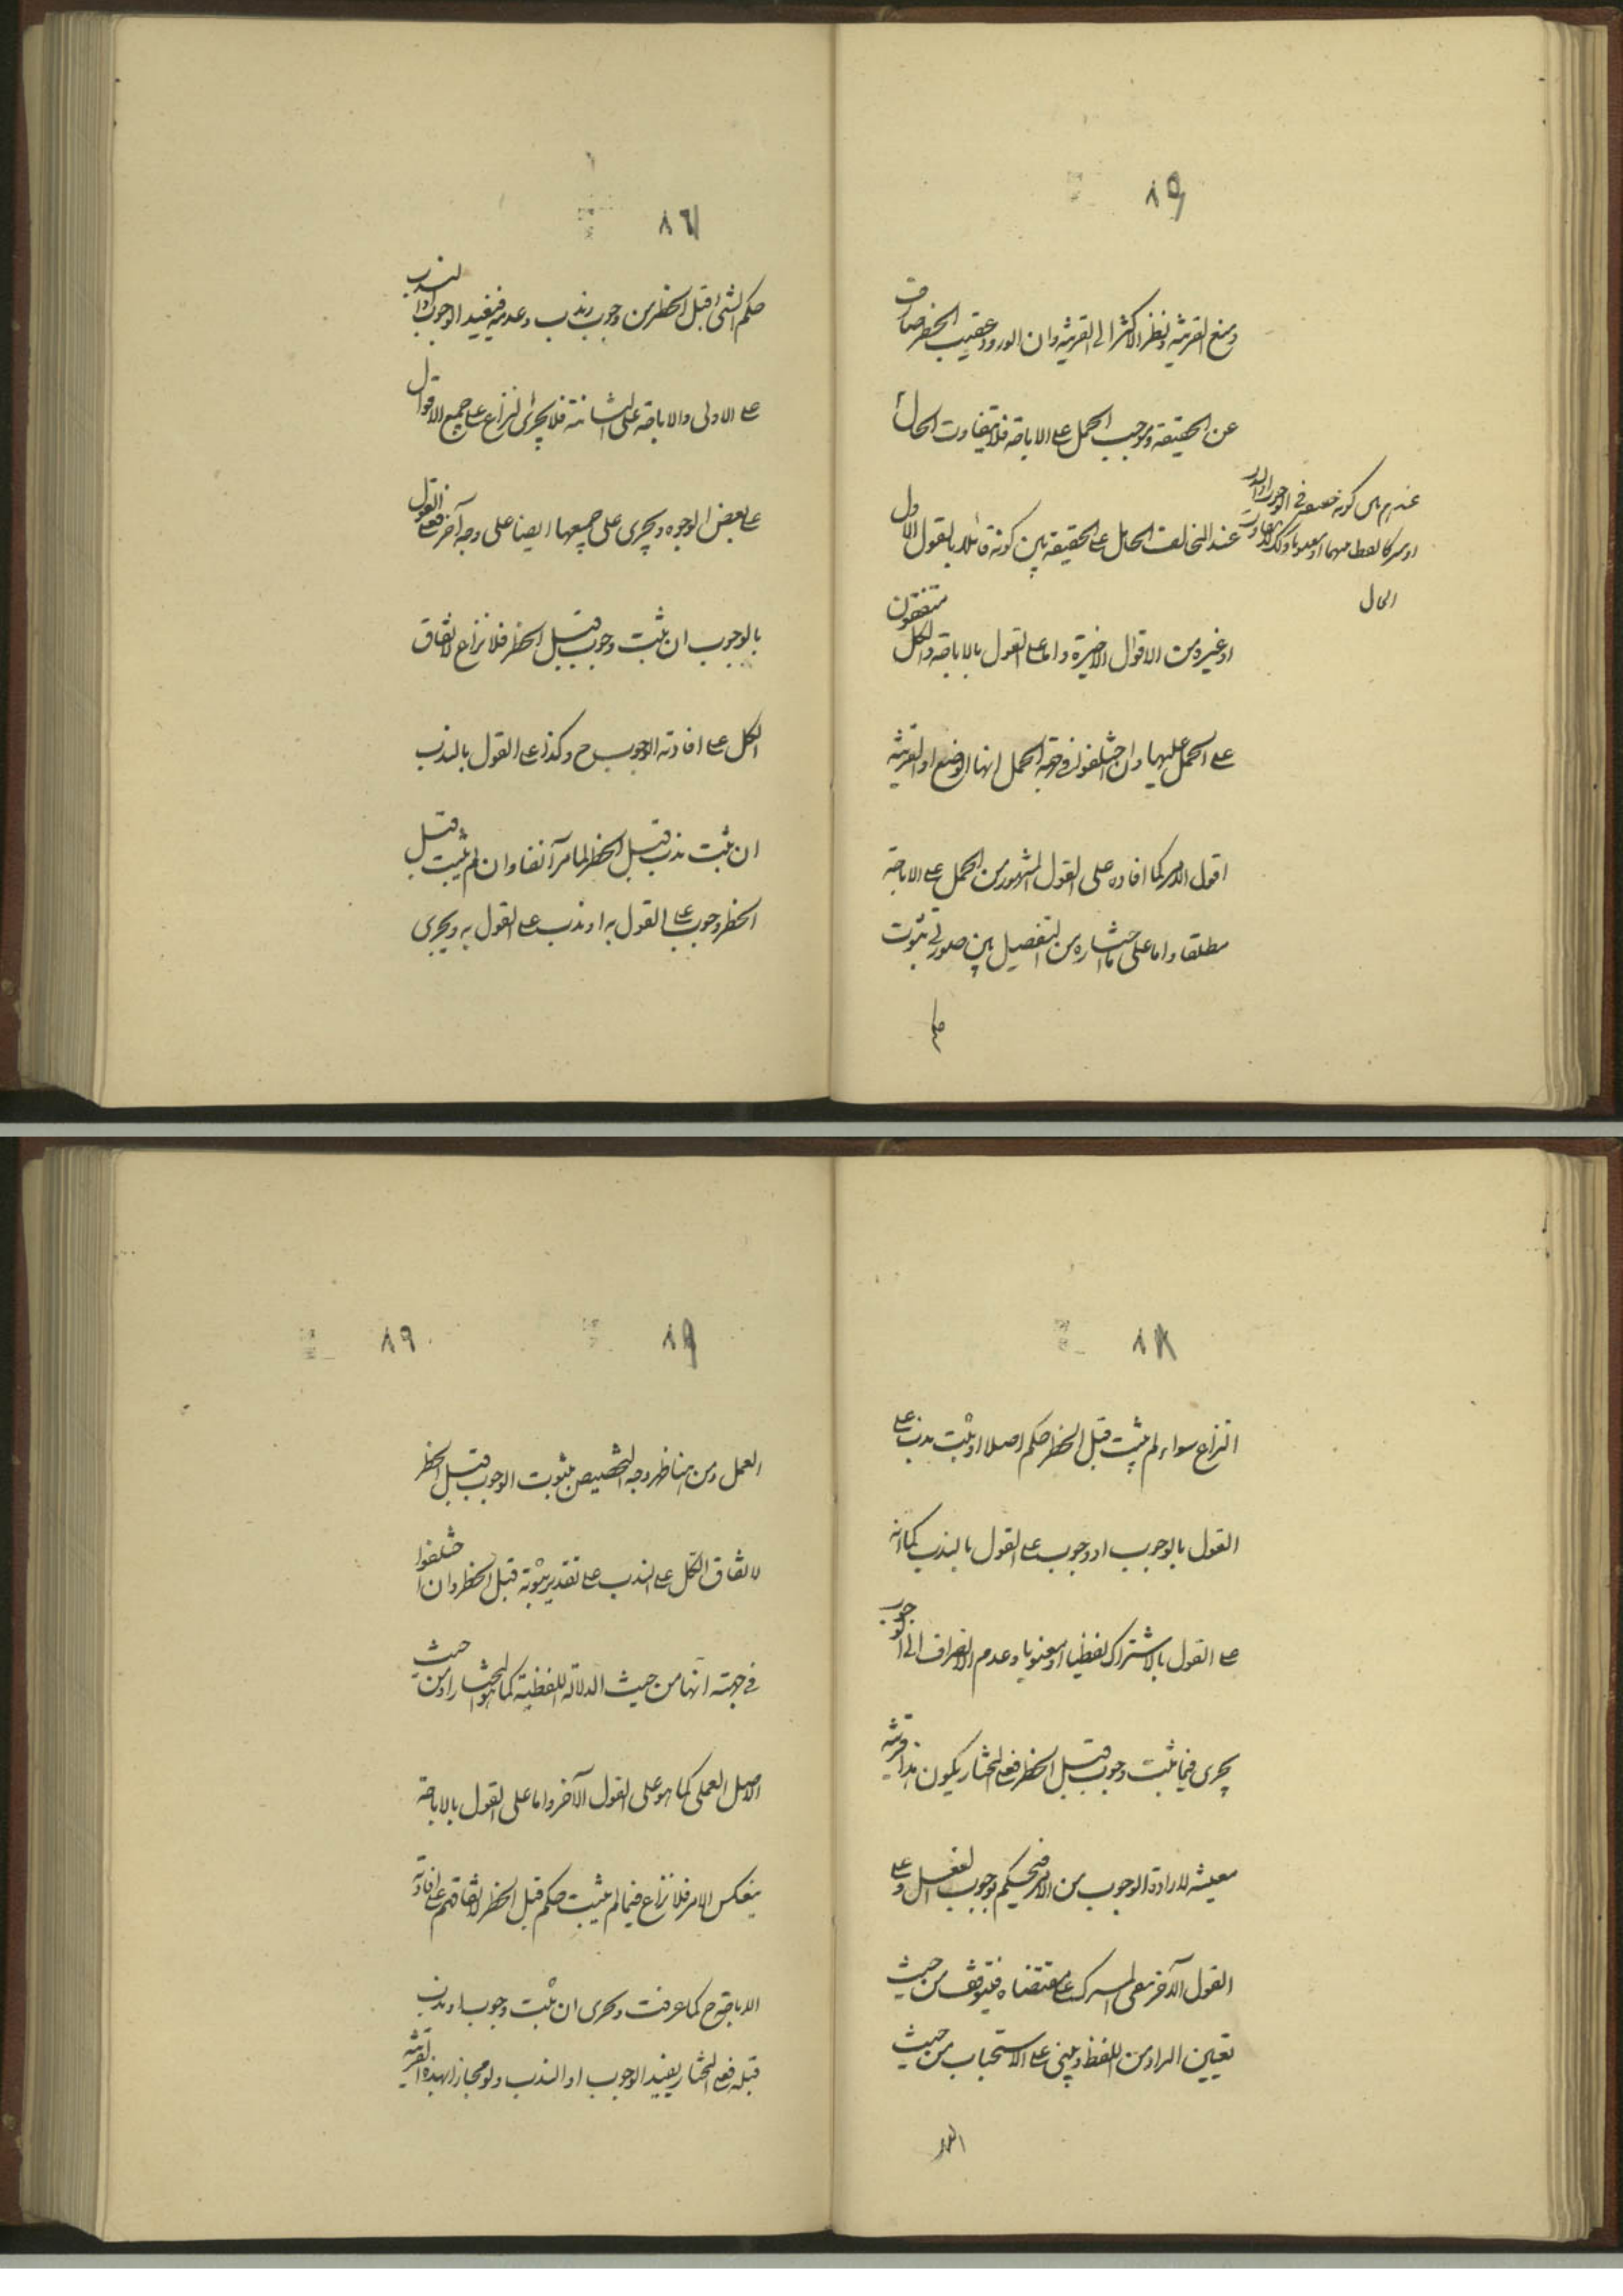 ومنع القرينة ونظر الاكثر الى القرينة وان الورود عقيب الحظر صارف
عن الحقيقة وموجب الحمل على الاباحة فلا يتفاوت الحال
عند المخالف الحامل على الحقيقة بين كونه قائلا بالقول الاول
او غيره من الاقوال الاخيرة واما على القول بالاباحة والكل متفقون
على الحمل عليها وان اختلفوا في جهة الحمل انها الوضع او القرينة
اقول الامر كما افاده على القول المشهور من الحمل على الاباحة
مطلقا واما على ما اختاره من التفصيل بين صورتي ثبوت
حكم
الحال
٨٦
حكم الشئ قبل الحظر من وجوب وندب وعدمه فيفيد الوجوب او الندب
على الاولى والاباحة على الثانية فلا يجرى النزاع على جميع الاقوال
على بعض الوجوه ويجرى على جميعها ايضا على وجه آخر فعلى القول
بالوجوب ان ثبت وجوب قبل الحظر فلا نزاع لاتفاق
الكل على افادته الوجوب ح وكذا على القول بالندب
ان ثبت ندب قبل الحظر لما مر آنفا وان لم يثبت قبل
الحظر وجوب على القول به او ندب على القول به ويجرى
النزاع سواء لم يثبت قبل الحظر حكم اصلا او ثبت ندب على
القول بالوجوب او وجوب على القول بالندب كما انه
على القول بالاشتراك لفظيا او معنويا وعدم الانصراف الى الوجوب
يجرى فيما ثبت وجوب قبل الحظر فعلى المختار يكون هذا قرينة
معينة لارادة الوجوب من الامر فيحكم بوجوب الفعل وعلى
القول الآخر يبقى المشترك على مقتضاه فيتوقف من حيث
تعيين المراد من اللفظ ويبنى على الاستحباب من حيث
العمل
٨٩
العمل ومن هنا ظهر وجه التخصيص بثبوت الوجوب قبل الحظر
لاتفاق الكل على الندب على تقدير ثبوته قبل الحظر وان اختلفوا
في جهته انها من حيث الدلالة اللفظية كما هو المختار او من حيث
الاصل العملى كما هو على القول الآخر واما على القول بالاباحة
ينعكس الامر فلا نزاع فيما لم يثبت حكم قبل الحظر لاتفاقهم على افادته
الاباحة ح كما عرفت ويجرى ان ثبت وجوب او ندب
قبله فعلى المختار يفيد الوجوب او الندب ولو مجازا لهذه القرينة